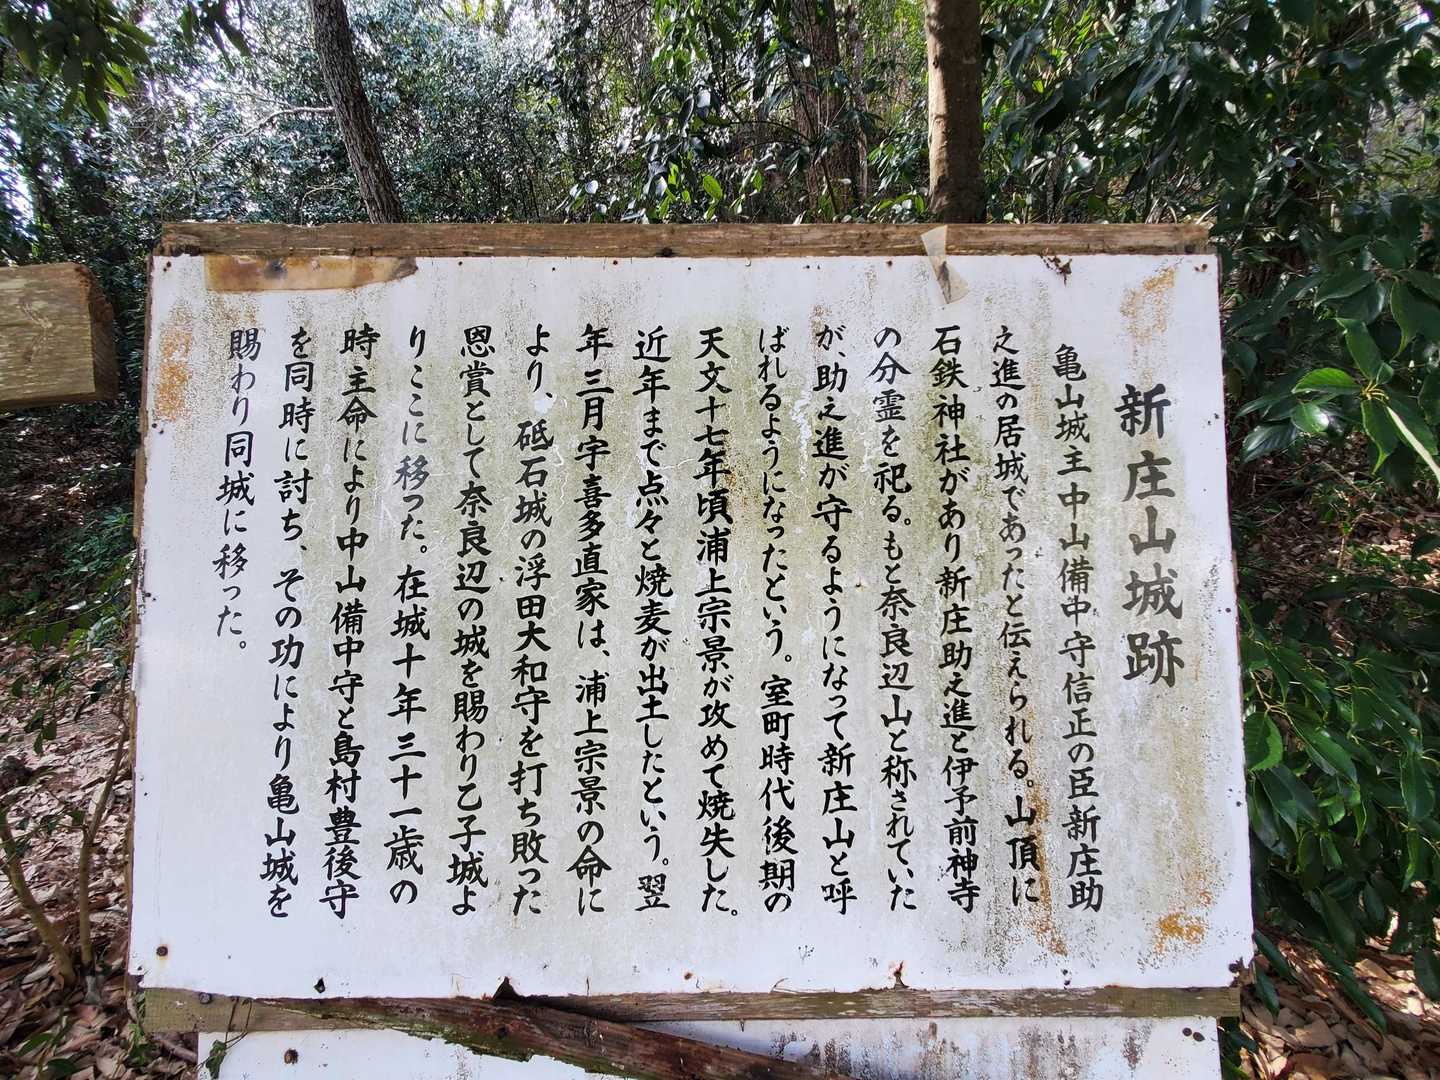 新庄山城跡
亀山城主中山備中守信正の臣新庄助
之進の居城であったと伝えられる。山頂に
石鉄神社があり新庄助之進と伊予前神寺
の分霊を祀る。もと奈良辺山と称されていた
が、助之進が守るようになって新庄山と呼
ばれるようになったという。室町時代後期の
天文十七年頃浦上宗景が攻めて焼失した。
近年まで点々と焼麦が出土したという。翌
年三月宇喜多直家は、浦上宗景の命に
より、砥石城の浮田大和守を打ち敗った
恩賞として奈良辺の城を賜わり乙子城よ
りここに移つた。在城十年三十一歳の
時主命により中山備中守と島村豊後守
を同時に討ち、その功により亀山城を
賜わり同城に移った。